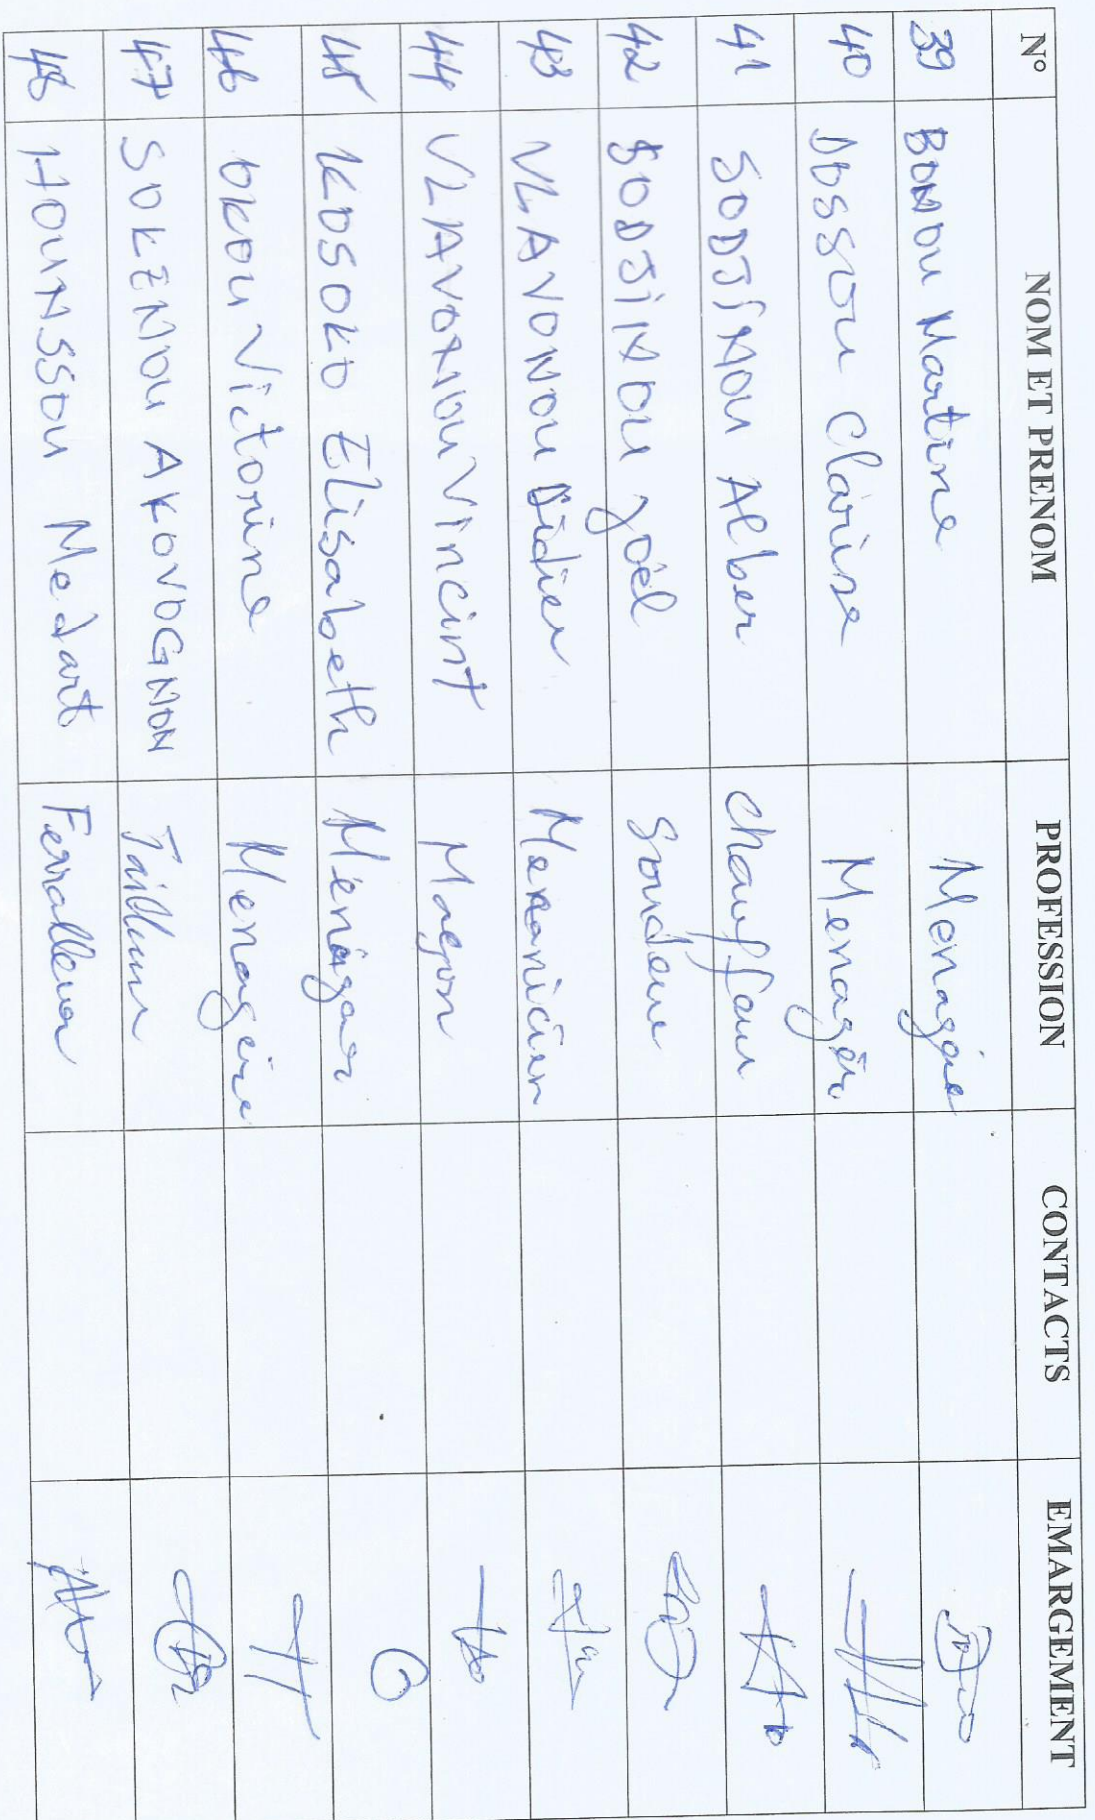 N° NOM ET PRENOM PROFESSION CONTACTS EMARGEMENT
39 BONOU Martine Menagère
40 DOSSOU Clarisse Menagèr
41 SODJINOU Alber Chauffeur
42 SODJINOU Joël Soudeur
43 VLAVONOU Didier Mecanicien
44 VLAVONOU Vincint Maçon
45 KOSOKO Elisabeth Menagèr
46 OKOU Victorine Menagère
47 SOKENOU AKOVOGNON Tailleur
48 HOUNSSOU Medart Ferailleur